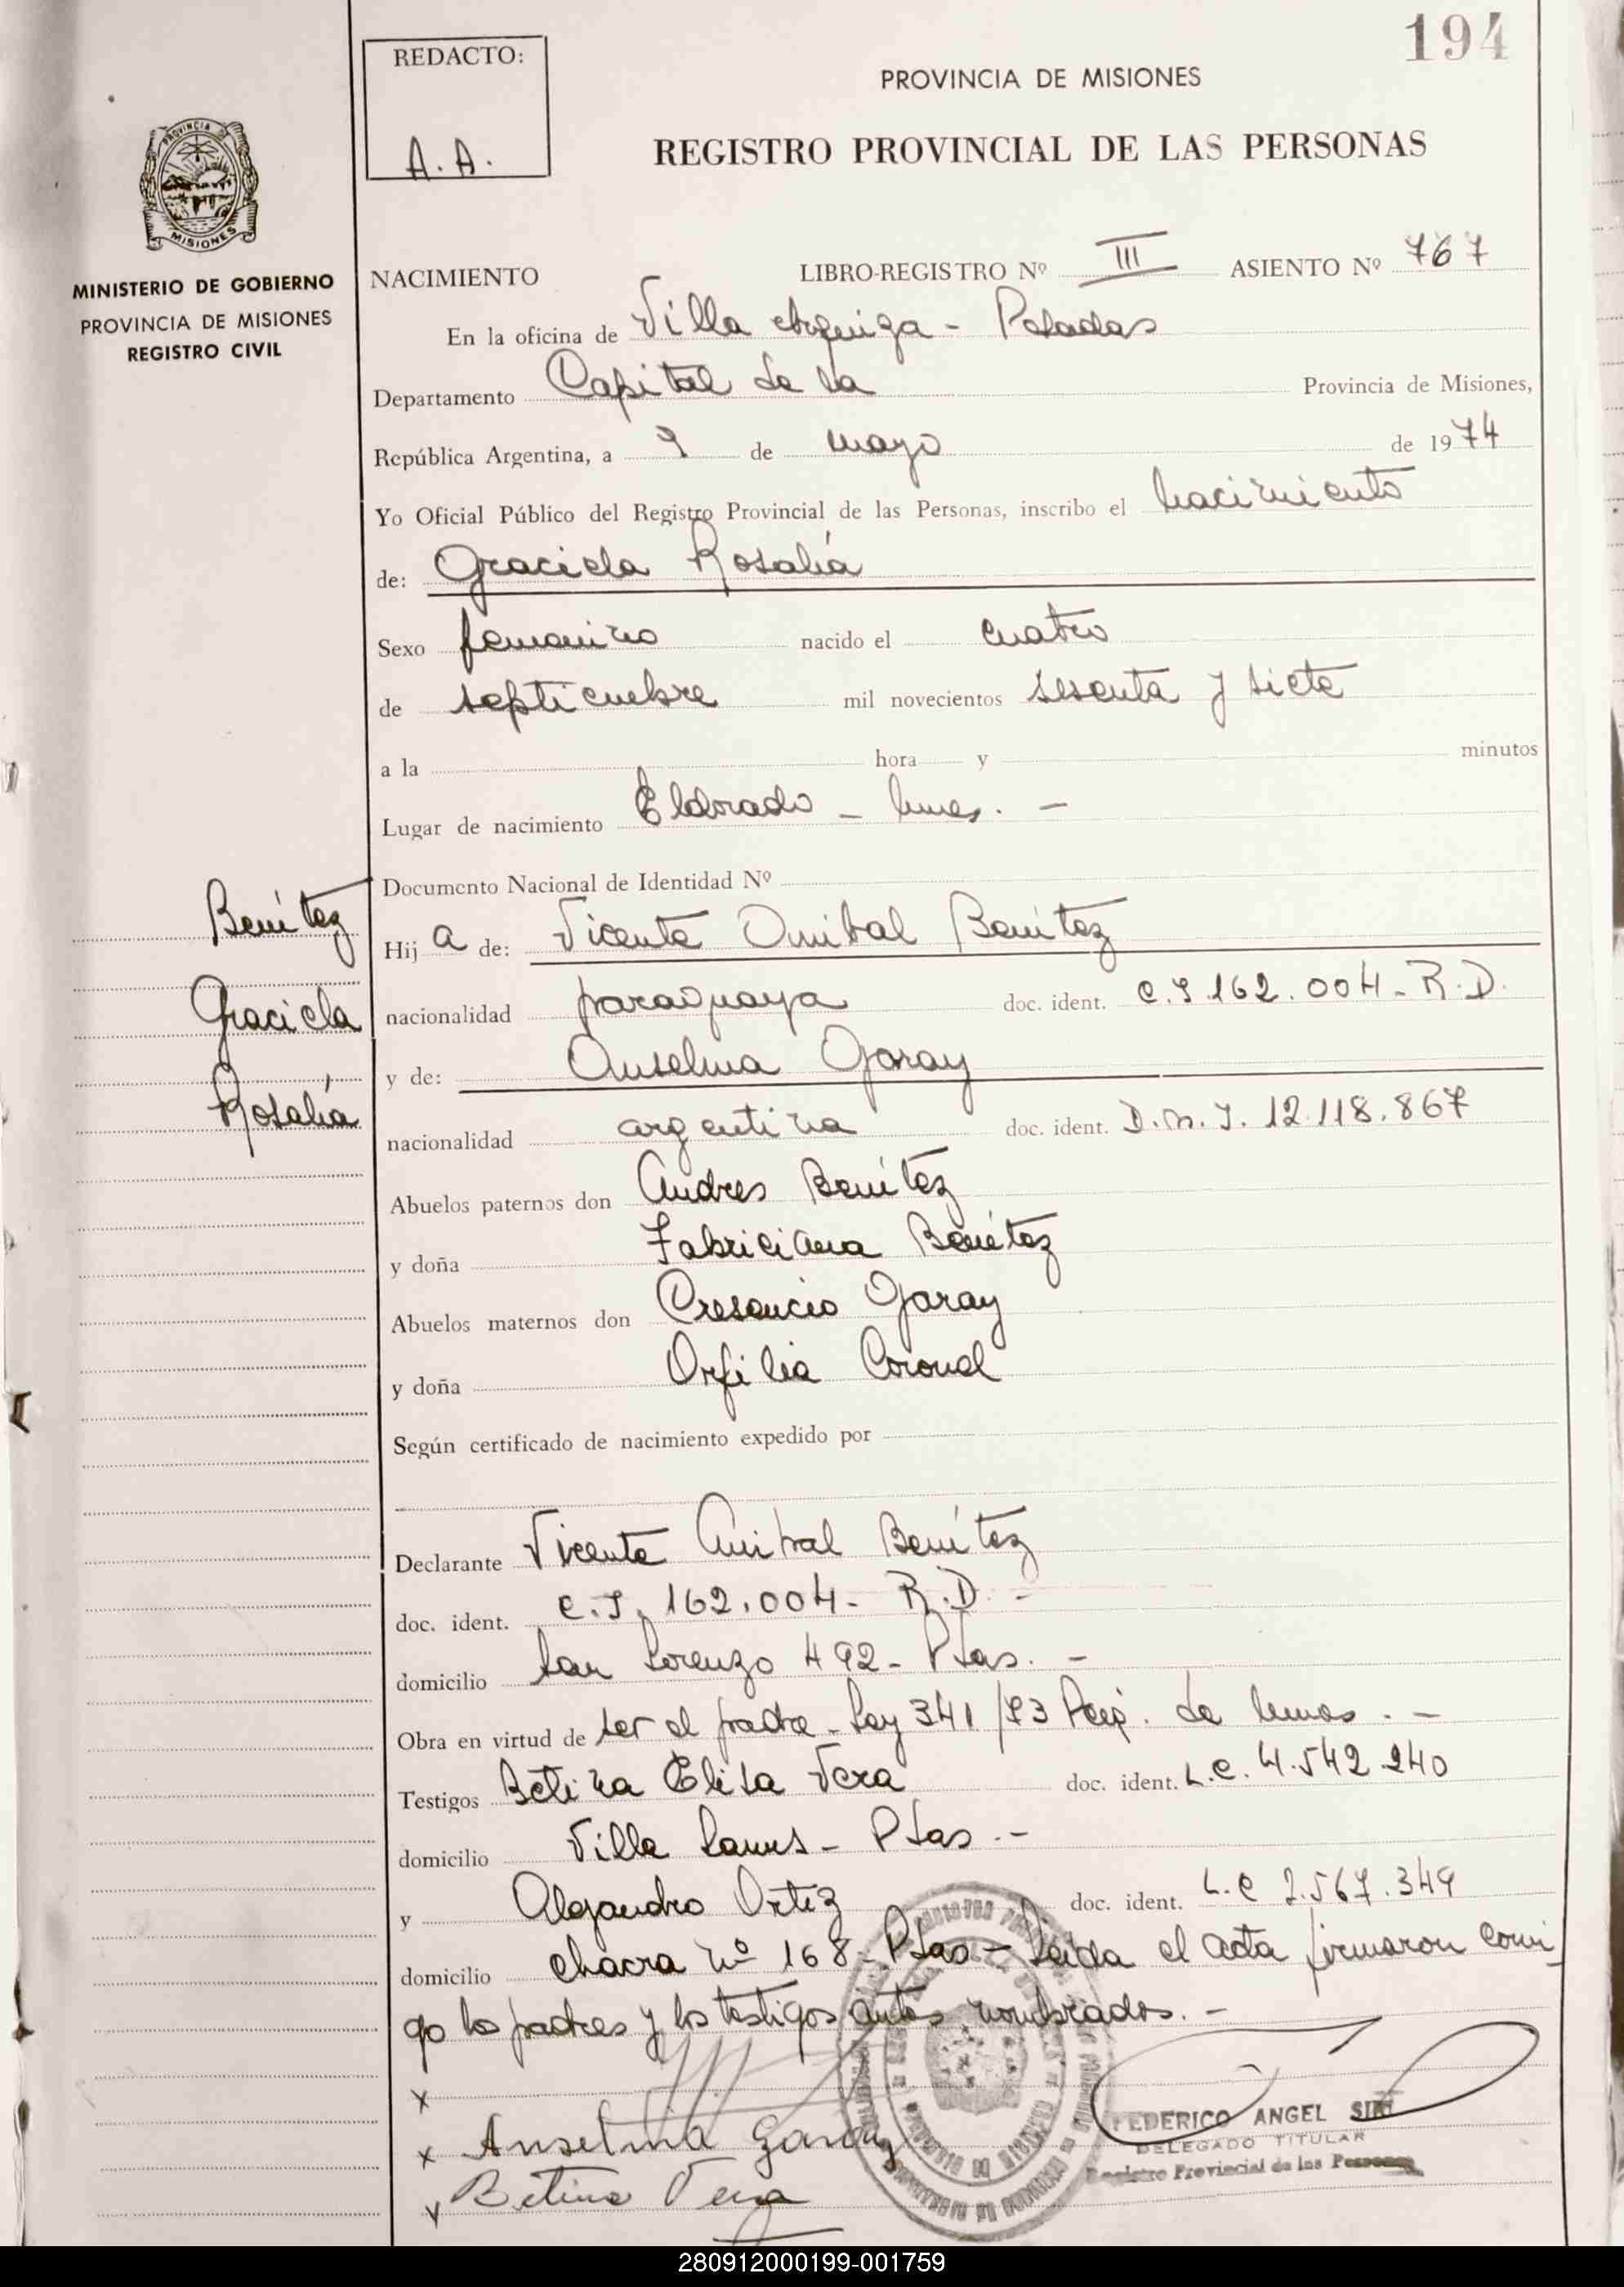 194
REDACTO:
A. A.
PROVINCIA DE MISIONES
REGISTRO PROVINCIAL DE LAS PERSONAS
PROVINCIA DE
MISIONES
MINISTERIO DE GOBIERNO
PROVINCIA DE MISIONES
REGISTRO CIVIL
NACIMIENTO LIBRO-REGISTRO Nº III ASIENTO Nº 767
En la oficina de Villa Urquiza - Posadas
Departamento Capital de la Provincia de Misiones,
República Argentina, a 9 de mayo de 1974
Yo Oficial Público del Registro Provincial de las Personas, inscribo el nacimiento
de: Graciela Rosalía
Sexo femenino nacido el cuatro
de septiembre mil novecientos sesenta y siete
a la hora y minutos
Lugar de nacimiento Eldorado - Mnes. -
Documento Nacional de Identidad Nº
Benítez
Graciela
Rosalía
Hij a de: Vicente Anibal Benítez
nacionalidad paraguaya doc. ident. C.I. 162.004 - R.D.
y de: Anselma Garay
nacionalidad argentina doc. ident. D.N.I. 12.118.867
Abuelos paternos don Andres Benítez
y doña Fabriciana Benítez
Abuelos maternos don Cresencio Garay
y doña Orfilia Coronel
Según certificado de nacimiento expedido por
Declarante Vicente Anibal Benítez
doc. ident. C.I. 162.004 - R.D. -
domicilio San Lorenzo 492 - Pdas. -
Obra en virtud de ser el padre - Ley 341/73 de Mnes. -
Testigos Betina Elisa Vera doc. ident. L.C. 4.542.240
domicilio Villa Lanus - Pdas. -
y Alejandro Ortiz doc. ident. L.E 2.567.349
domicilio chacra nº 168 - Pdas - Leida el acta firmaron conmi
go los padres y los testigos antes nombrados. -
x
x Anselma Garay
x Betina Vera
FEDERICO ANGEL
DELEGADO TITULAR
Registro Provincial de las Personas
280912000199-001759